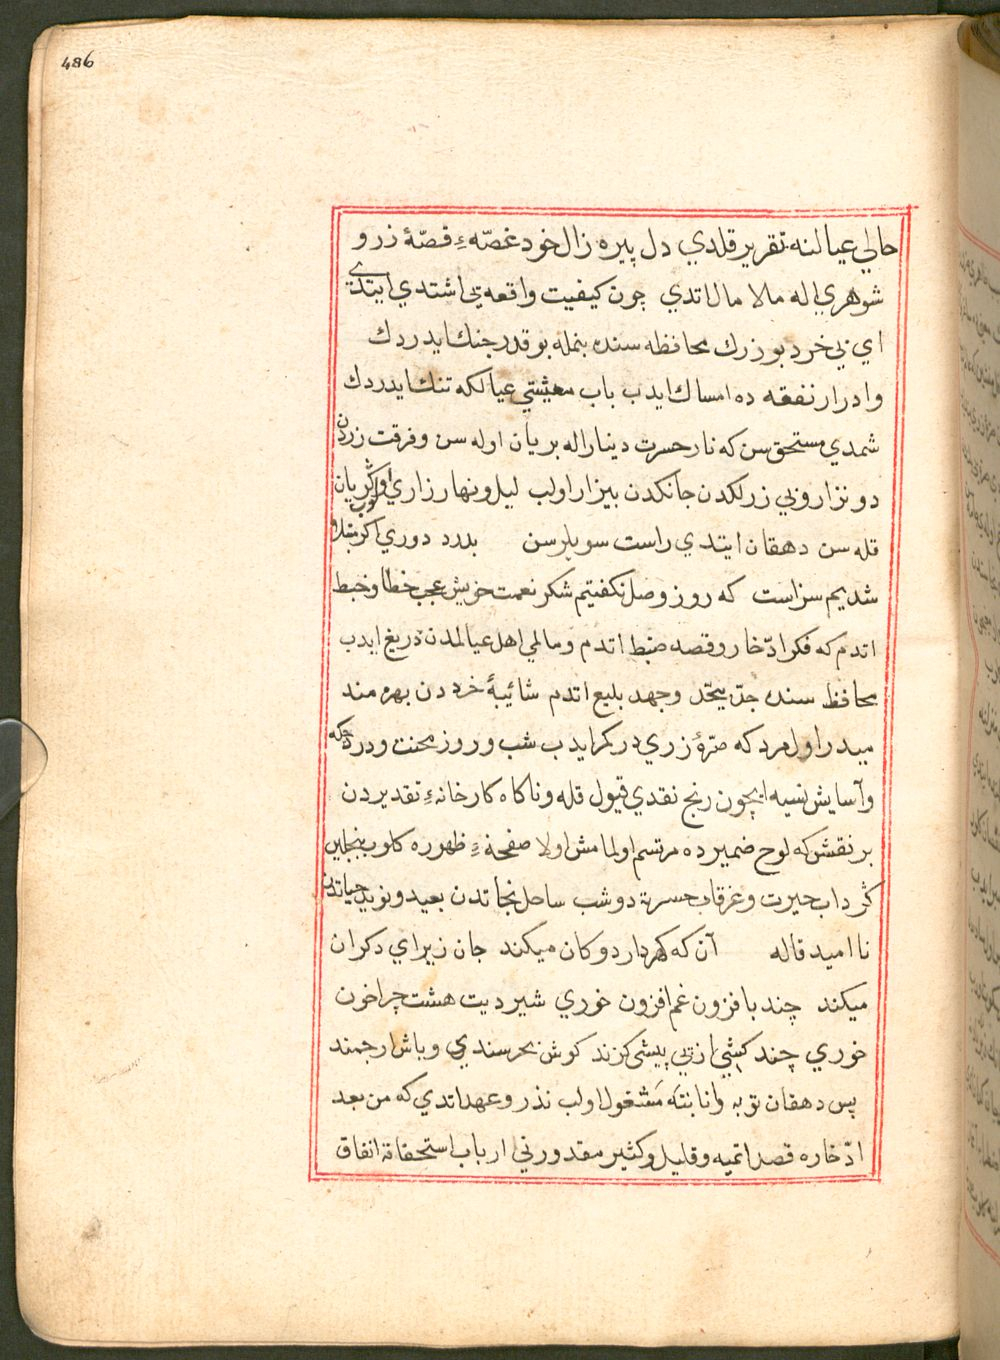 486
حالي عيالنه تقرير قلدي دل پيره زال خود غصّهء قصّهٔ زر و
شوهري اله مالا مال اتدي چون كيفيت واقعه يي اشتدي ايتدي
اي بي خرد بو زرك محافظه سنده بنمله بو قدر جنك ايدردك
وادرار نفقه ده امساك ايدب باب معيشتي عيالكه تنك ايدردك
شمدي مستحق سن كه نار حسرت ديناراله بريان اوله سن وفرقت زردن
دونزار وبي زرلكدن جانكدن بيزار اولب ليل ونهار زاري
قله سن دهقان ايتدي راست سويلرسن بدرد دوري اكر مبتلا
شديم سزاست كه روز وصل نكفتيم شكر نعمت خويش عجب خطا وخبط
اتدم كه فكر ادّخار وقصد ضبط اتدم ومالمي اهل عيالمدن دريغ ايدب
محافظه سنده جدّ بيحّد وجهد بليع اتدم شائبهٔ خرددن بهره مند
ميدر اول مرد كه صرّهٔ زري در كمر ايدب شب وروز محنت ودرد
وآسايش نسيه ايچون رنج نقدي قبول قله وناكاه كارخانهء تقديردن
بر نقش كه لوح ضميرده مرتسم اولمامش اولا صفحهء ظهوره كلوب
كرداب حيرت وغرقاب حسرته دوشب ساحل نجاتدن بعيد ونويد حياتدن
نا اميد قاله آن كه كهردار دوكان ميكند جان زبراي دكران
ميكند چند با فزون غم افزون خوري شير ديت هشت چرا خون
خوري چند كشي از پي بيشي كزند كوش بخرسندي وباش ارجمند
پس دهقان توبه وانابته مشغول اولب نذر وعهد اتدي كه من بعد
ادّخاره قصد اتميه وقليل وكثير مقدورني ارباب استحقاقه انفاق